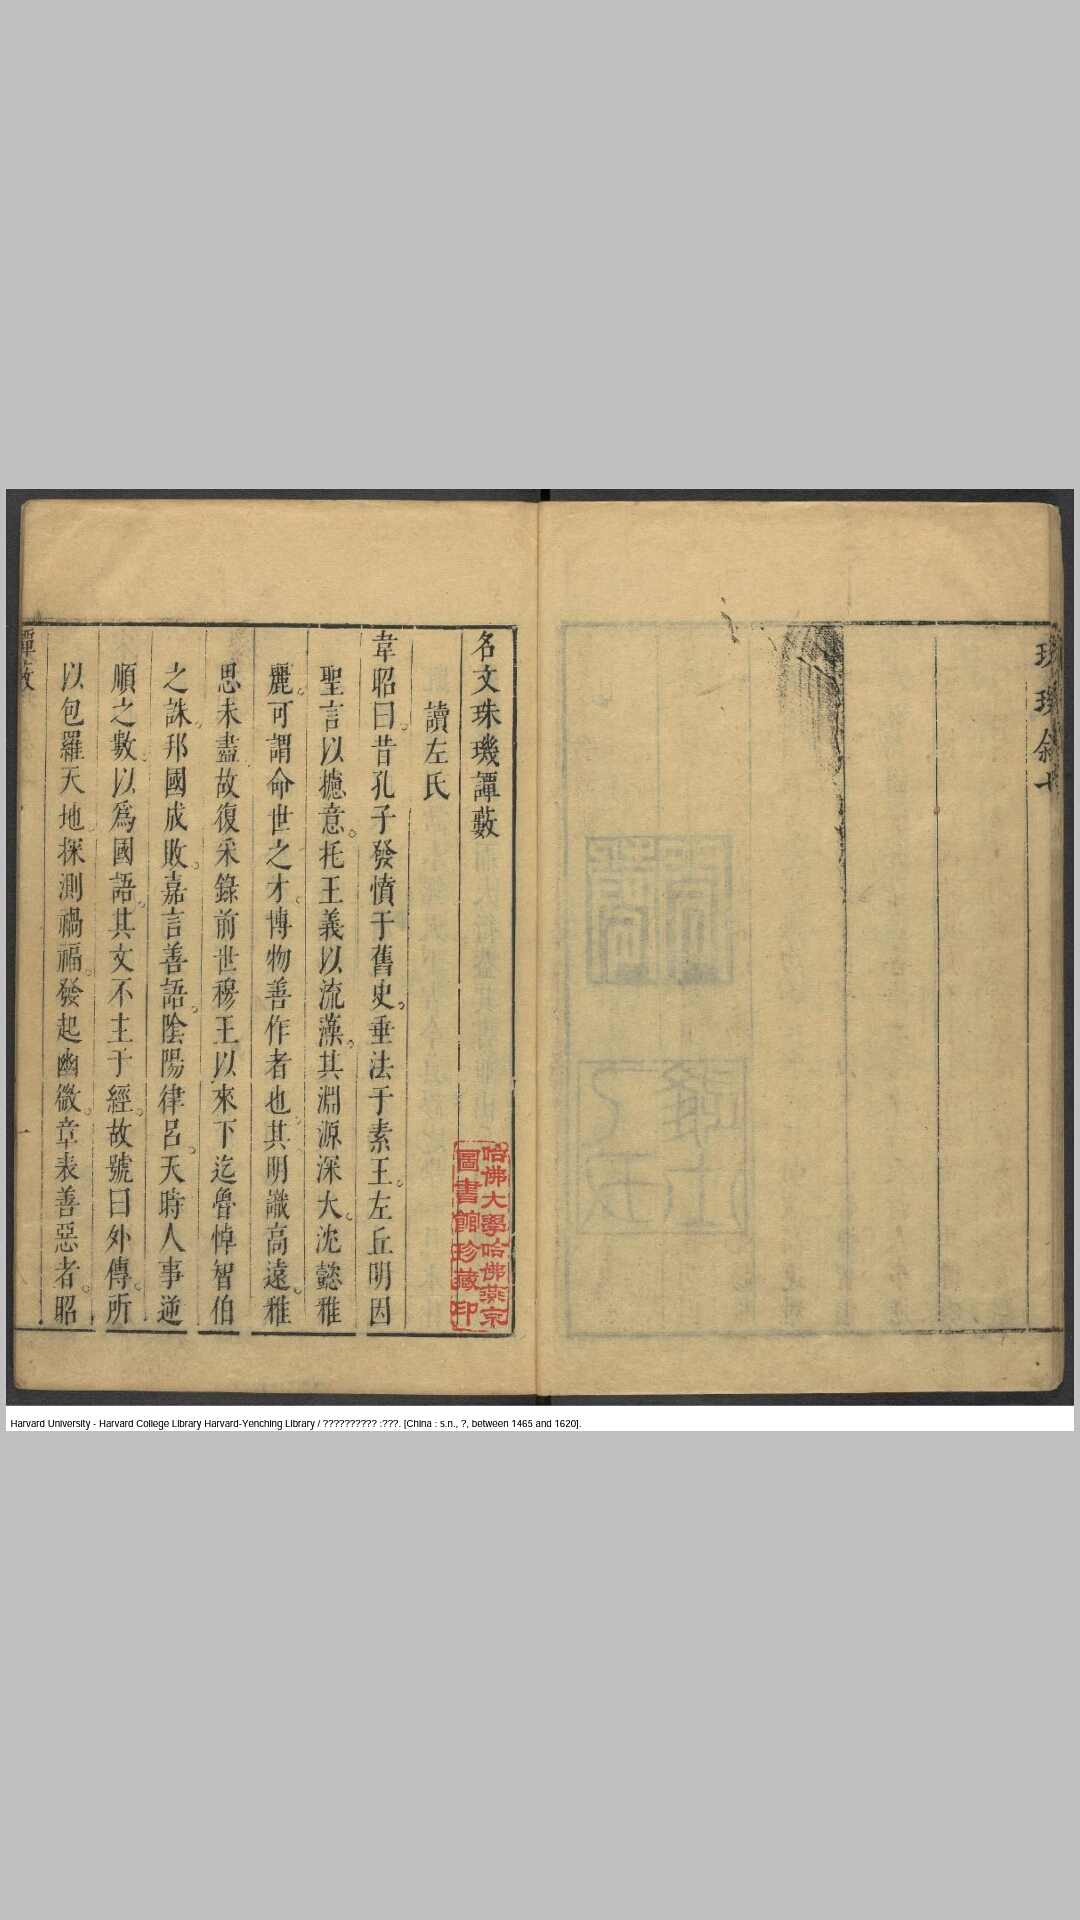 名文珠璣譚藪
讀左氏
韋昭曰昔孔子發憤于舊史。垂法于素王。左丘明因
聖言以攄意。托王義以流藻。其淵源深大。沈懿雅
麗。可謂命世之才。博物善作者也。其明識高遠。雅
思未盡故復采錄前世穆王以來下迄魯悼智伯
之誅。邦國成敗。嘉言善語。陰陽律呂。天時人事逆
順之數。以爲國語。其文不主于經。故號曰外傳。所
以包羅天地。探測禍福。發起幽微。章表善惡者。昭
譚藪
一
哈佛大學哈佛燕京
圖書館珍藏印
Harvard University - Harvard College Library Harvard-Yenching Library / ?????????? :???. [China : s.n., ?, between 1465 and 1620].